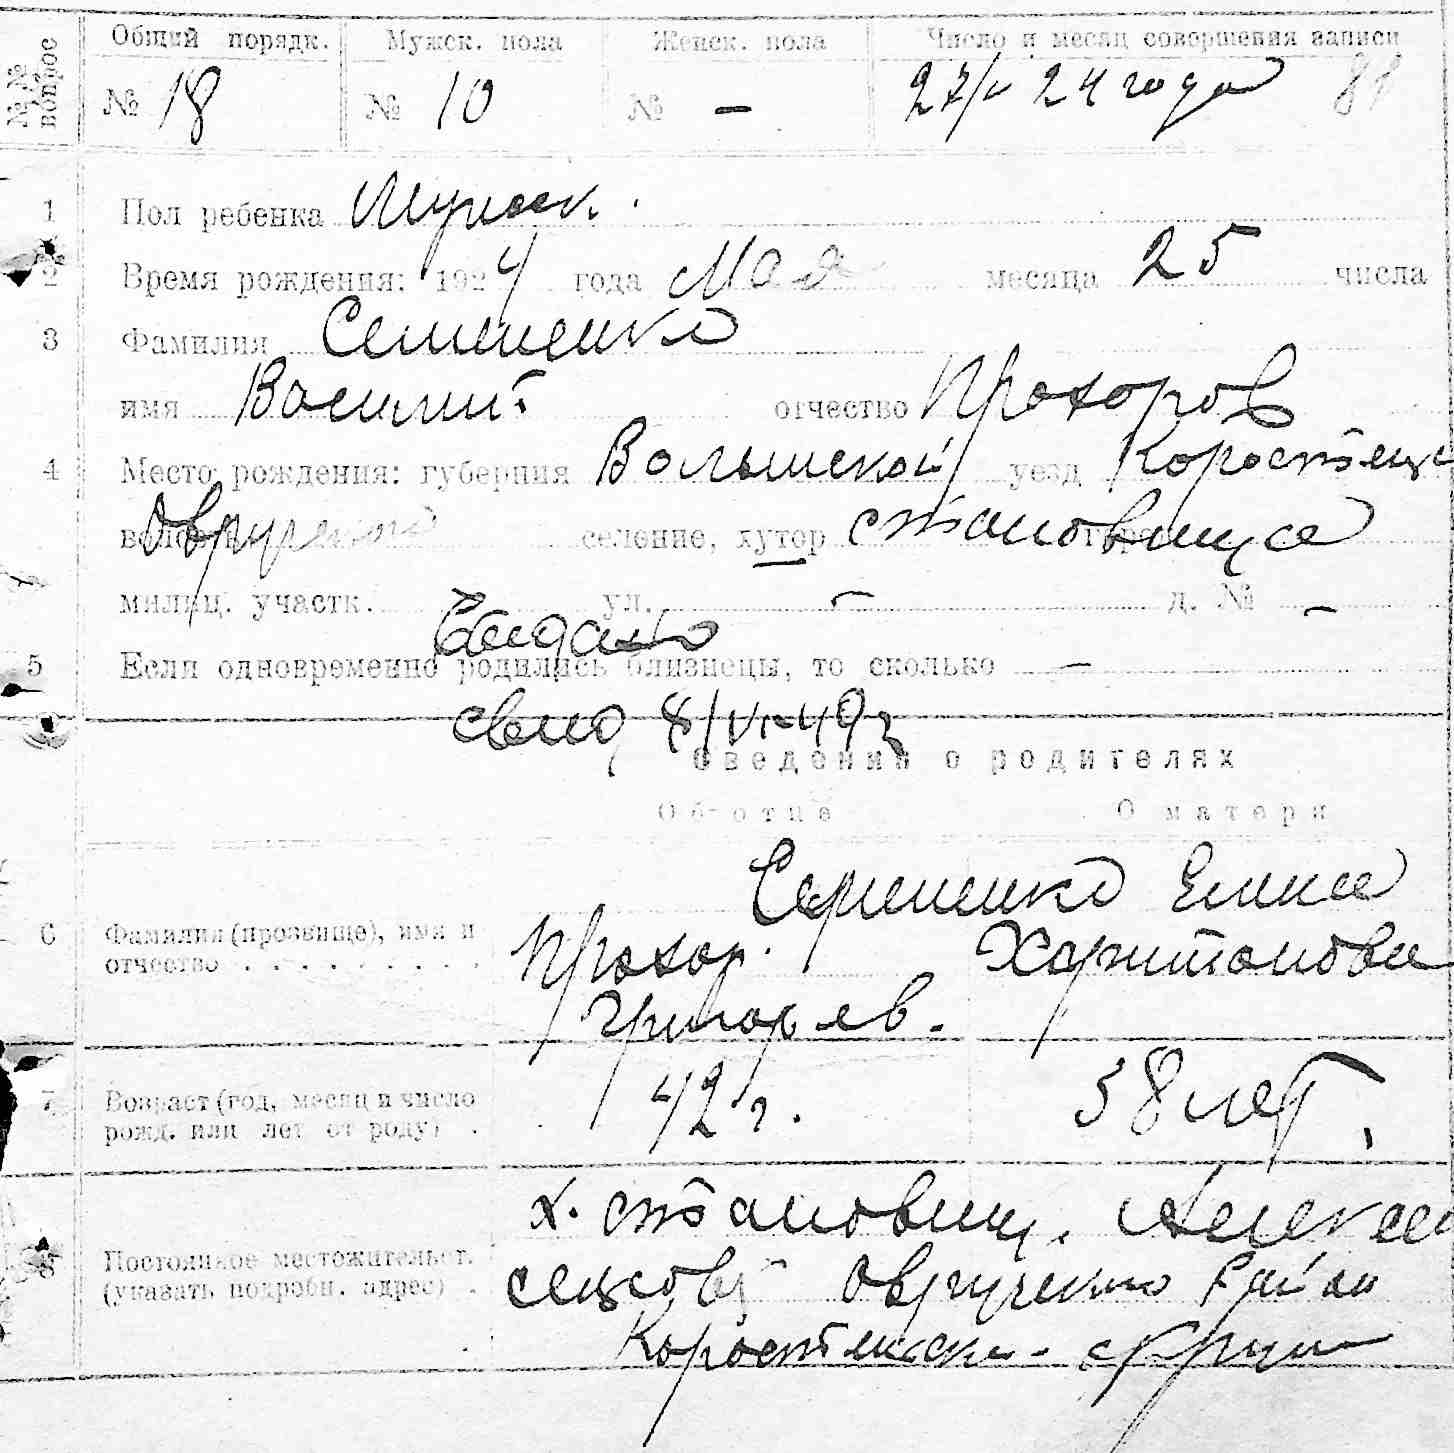 №№ вопрос
Общий порядк. Мужск. пола Женск. пола Число и месяц совершения записи
№ 18 № 10 № — 27/ 24 года 81
1 Пол ребенка Мужск.
2 Время рождения: 1924 года Мая месяца 25 числа
3 Фамилия Семененко
имя Василий отчество Прохоров
4 Место рождения: губерния Волынской уезд Коростенск
волость Овручской селение, хутор становище
милиц. участк. ул. — д. № —
Выдано
5 Если одновременно родились близнецы, то сколько —
свид 8/VI-49г
Сведения о родителях
Об отце О матери
Семененко Елена
6 Фамилия (прозвище), имя и отчество Прохор. Харитоновна
Григорьев.
7 Возраст (год, месяц и число рожд. или лет от роду) 42 г. 38 лет.
х. становищ.
8 Постоянное местожительст. (указать подробн. адрес) сельсов Овручского Района
Коростенск. округи